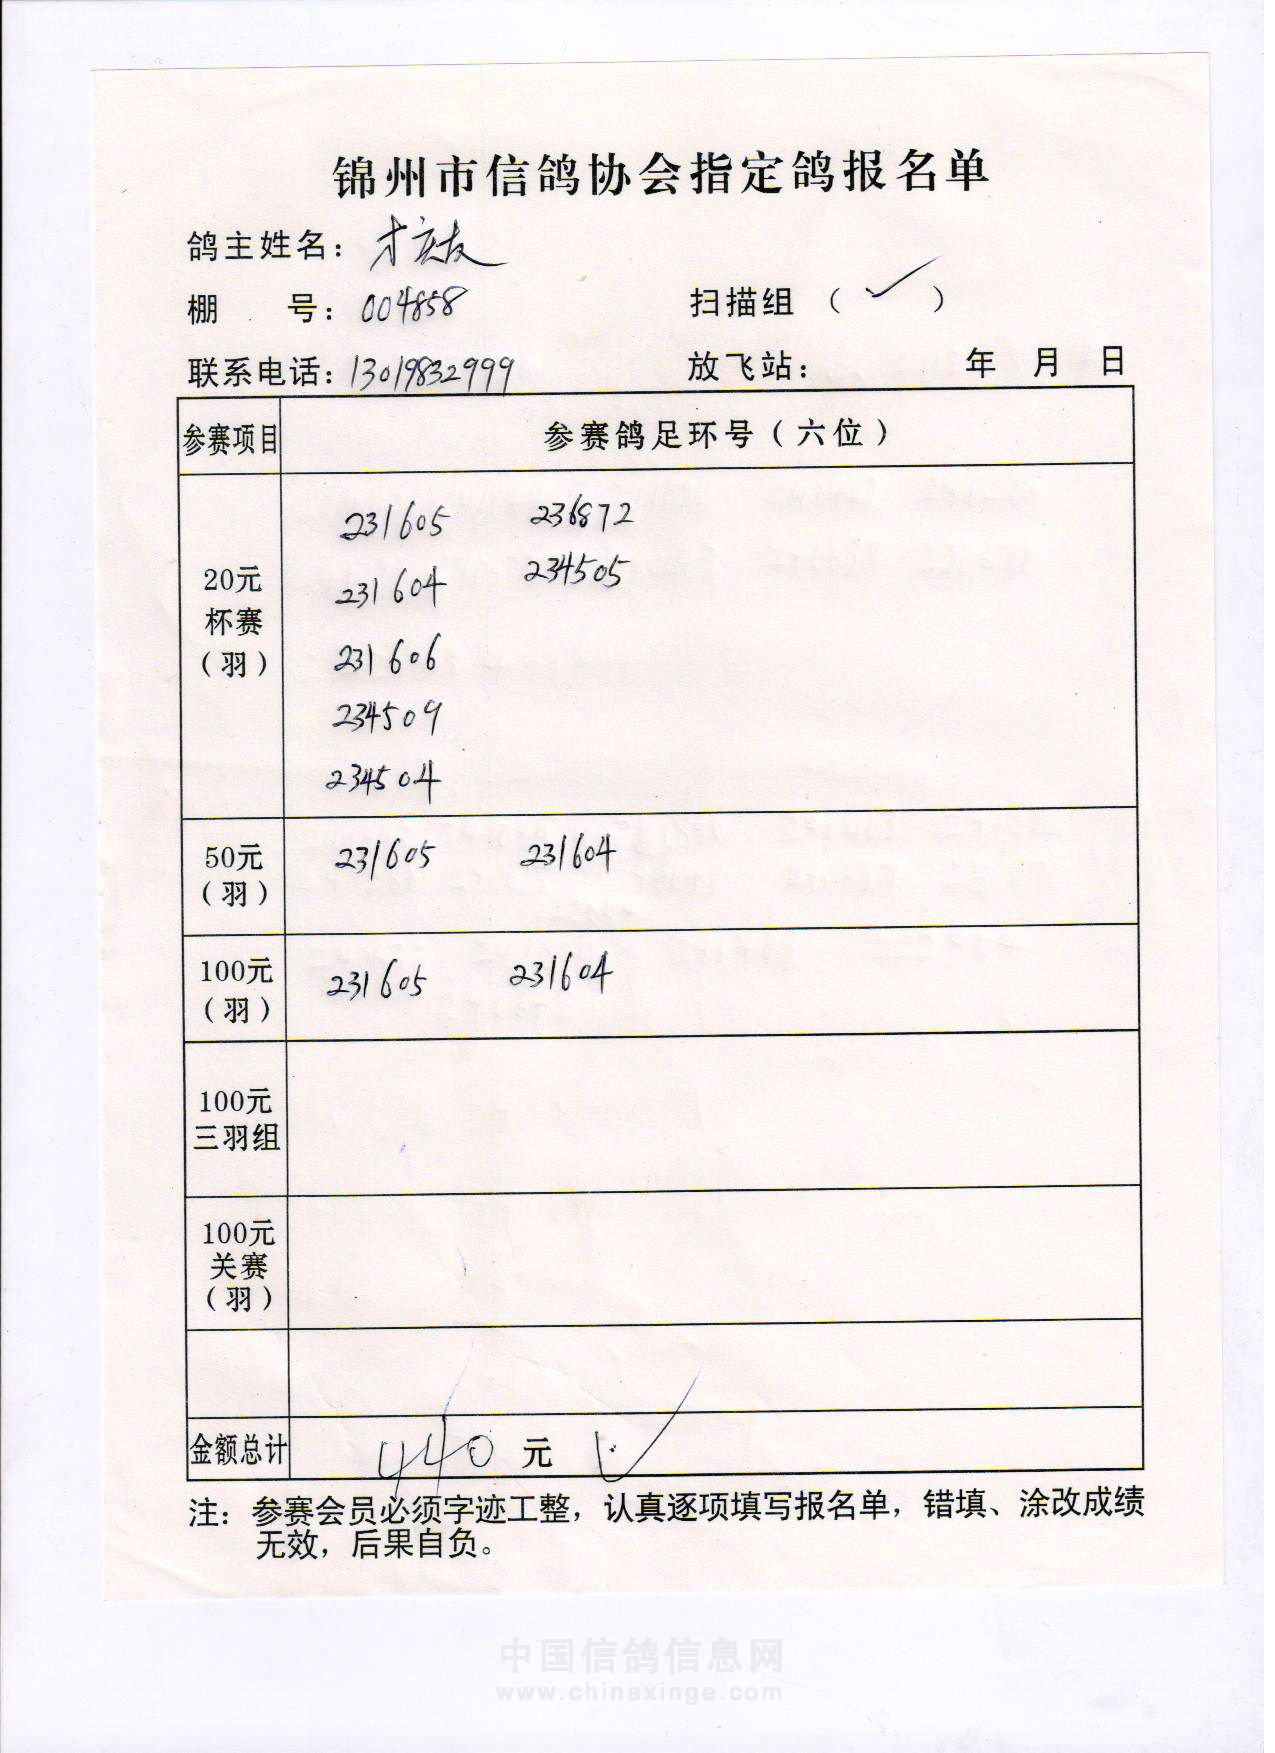 锦州市信鸽协会指定鸽报名单
鸽主姓名：才
棚 号：004858 扫描组（✓）
联系电话：13019832999 放飞站： 年 月 日
参赛项目 参赛鸽足环号（六位）
20元
杯赛
（羽）
231605 236872
231604 234505
231606
234509
234504
50元
（羽）
231605 231604
100元
（羽）
231605 231604
100元
三羽组
100元
关赛
（羽）
金额总计 440 元
注：参赛会员必须字迹工整，认真逐项填写报名单，错填、涂改成绩
无效，后果自负。
中国信鸽信息网
www.chinaxinge.com